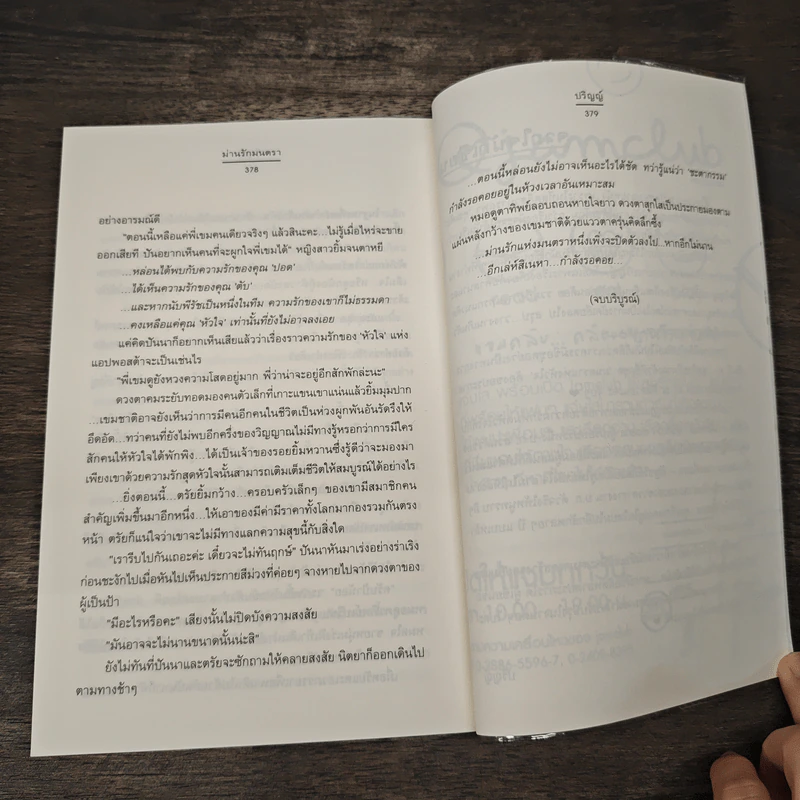 ม่านรักมนตรา
378
อย่างอารมณ์ดี
"ตอนนี้เหลือแค่พี่เขมคนเดียวจริงๆ แล้วสินะคะ...ไม่รู้เมื่อไหร่จะขาย
ออกเสียที ปันอยากเห็นคนที่จะผูกใจพี่เขมได้" หญิงสาวยิ้มจนตาหยี
...หล่อนได้พบกับความรักของคุณ 'ปอด'
...ได้เห็นความรักของคุณ 'ตับ'
...และหากนับพี่รัชเป็นหนึ่งในทีม ความรักของเขาก็ไม่ธรรมดา
...คงเหลือแค่คุณ 'หัวใจ' เท่านั้นที่ยังไม่อาจลงเอย
แค่คิดปันนาก็อยากเห็นเสียแล้วว่าเรื่องราวความรักของ 'หัวใจ' แห่ง
แอปพอสต้าจะเป็นเช่นไร
"พี่เขมดูยังหวงความโสดอยู่มาก พี่ว่าน่าจะอยู่อีกสักพักล่ะนะ"
ดวงตาคมระยับทอดมองคนตัวเล็กที่เกาะแขนเขาแน่นแล้วยิ้มมุมปาก
...เขมชาติอาจยังเห็นว่าการมีคนอีกคนในชีวิตเป็นห่วงผูกพันอันรัดรึงให้
อึดอัด...ทว่าคนที่ยังไม่พบอีกครึ่งของวิญญาณไม่มีทางรู้หรอกว่าการมีใคร
สักคนให้หัวใจได้พักพิง...ได้เป็นเจ้าของรอยยิ้มหวานซึ้งรู้ดีว่าจะมองมา
เพียงเขาด้วยความรักสุดหัวใจนั้นสามารถเติมเต็มชีวิตให้สมบูรณ์ได้อย่างไร
...ยิ่งตอนนี้...ตรัยยิ้มกว้าง...ครอบครัวเล็กๆ ของเขามีสมาชิกคน
สำคัญเพิ่มขึ้นมาอีกหนึ่ง...ให้เอาของมีค่ามีราคาทั้งโลกมากองรวมกันตรง
หน้า ตรัยก็แน่ใจว่าเขาจะไม่มีทางแลกความสุขนี้กับสิ่งใด
"เรารีบไปกันเถอะค่ะ เดี๋ยวจะไม่ทันฤกษ์" ปันนาหันมาเร่งอย่างร่าเริง
ก่อนชะงักไปเมื่อหันไปเห็นประกายสีม่วงที่ค่อยๆ จางหายไปจากดวงตาของ
ผู้เป็นป้า
"มีอะไรหรือคะ" เสียงนั้นไม่ปิดบังความสงสัย
"มันอาจจะไม่นานขนาดนั้นน่ะสิ"
ยังไม่ทันที่ปันนาและตรัยจะซักถามให้คลายสงสัย นิตยาก็ออกเดินไป
ตามทางช้าๆ
ปริญญ์
379
...ตอนนี้หล่อนยังไม่อาจเห็นอะไรได้ชัด ทว่ารู้แน่ว่า 'ชะตากรรม'
กำลังรอคอยอยู่ในห้วงเวลาอันเหมาะสม
หมอดูตาทิพย์ลอบถอนหายใจยาว ดวงตาสุกใสเป็นประกายมองตาม
แผ่นหลังกว้างของเขมชาติด้วยแววตาครุ่นคิดลึกซึ้ง
...ม่านรักแห่งมนตราหนึ่งเพิ่งจะปิดตัวลงไป...หากอีกไม่นาน
...อีกเล่ห์สิเนหา...กำลังรอคอย...
(จบบริบูรณ์)